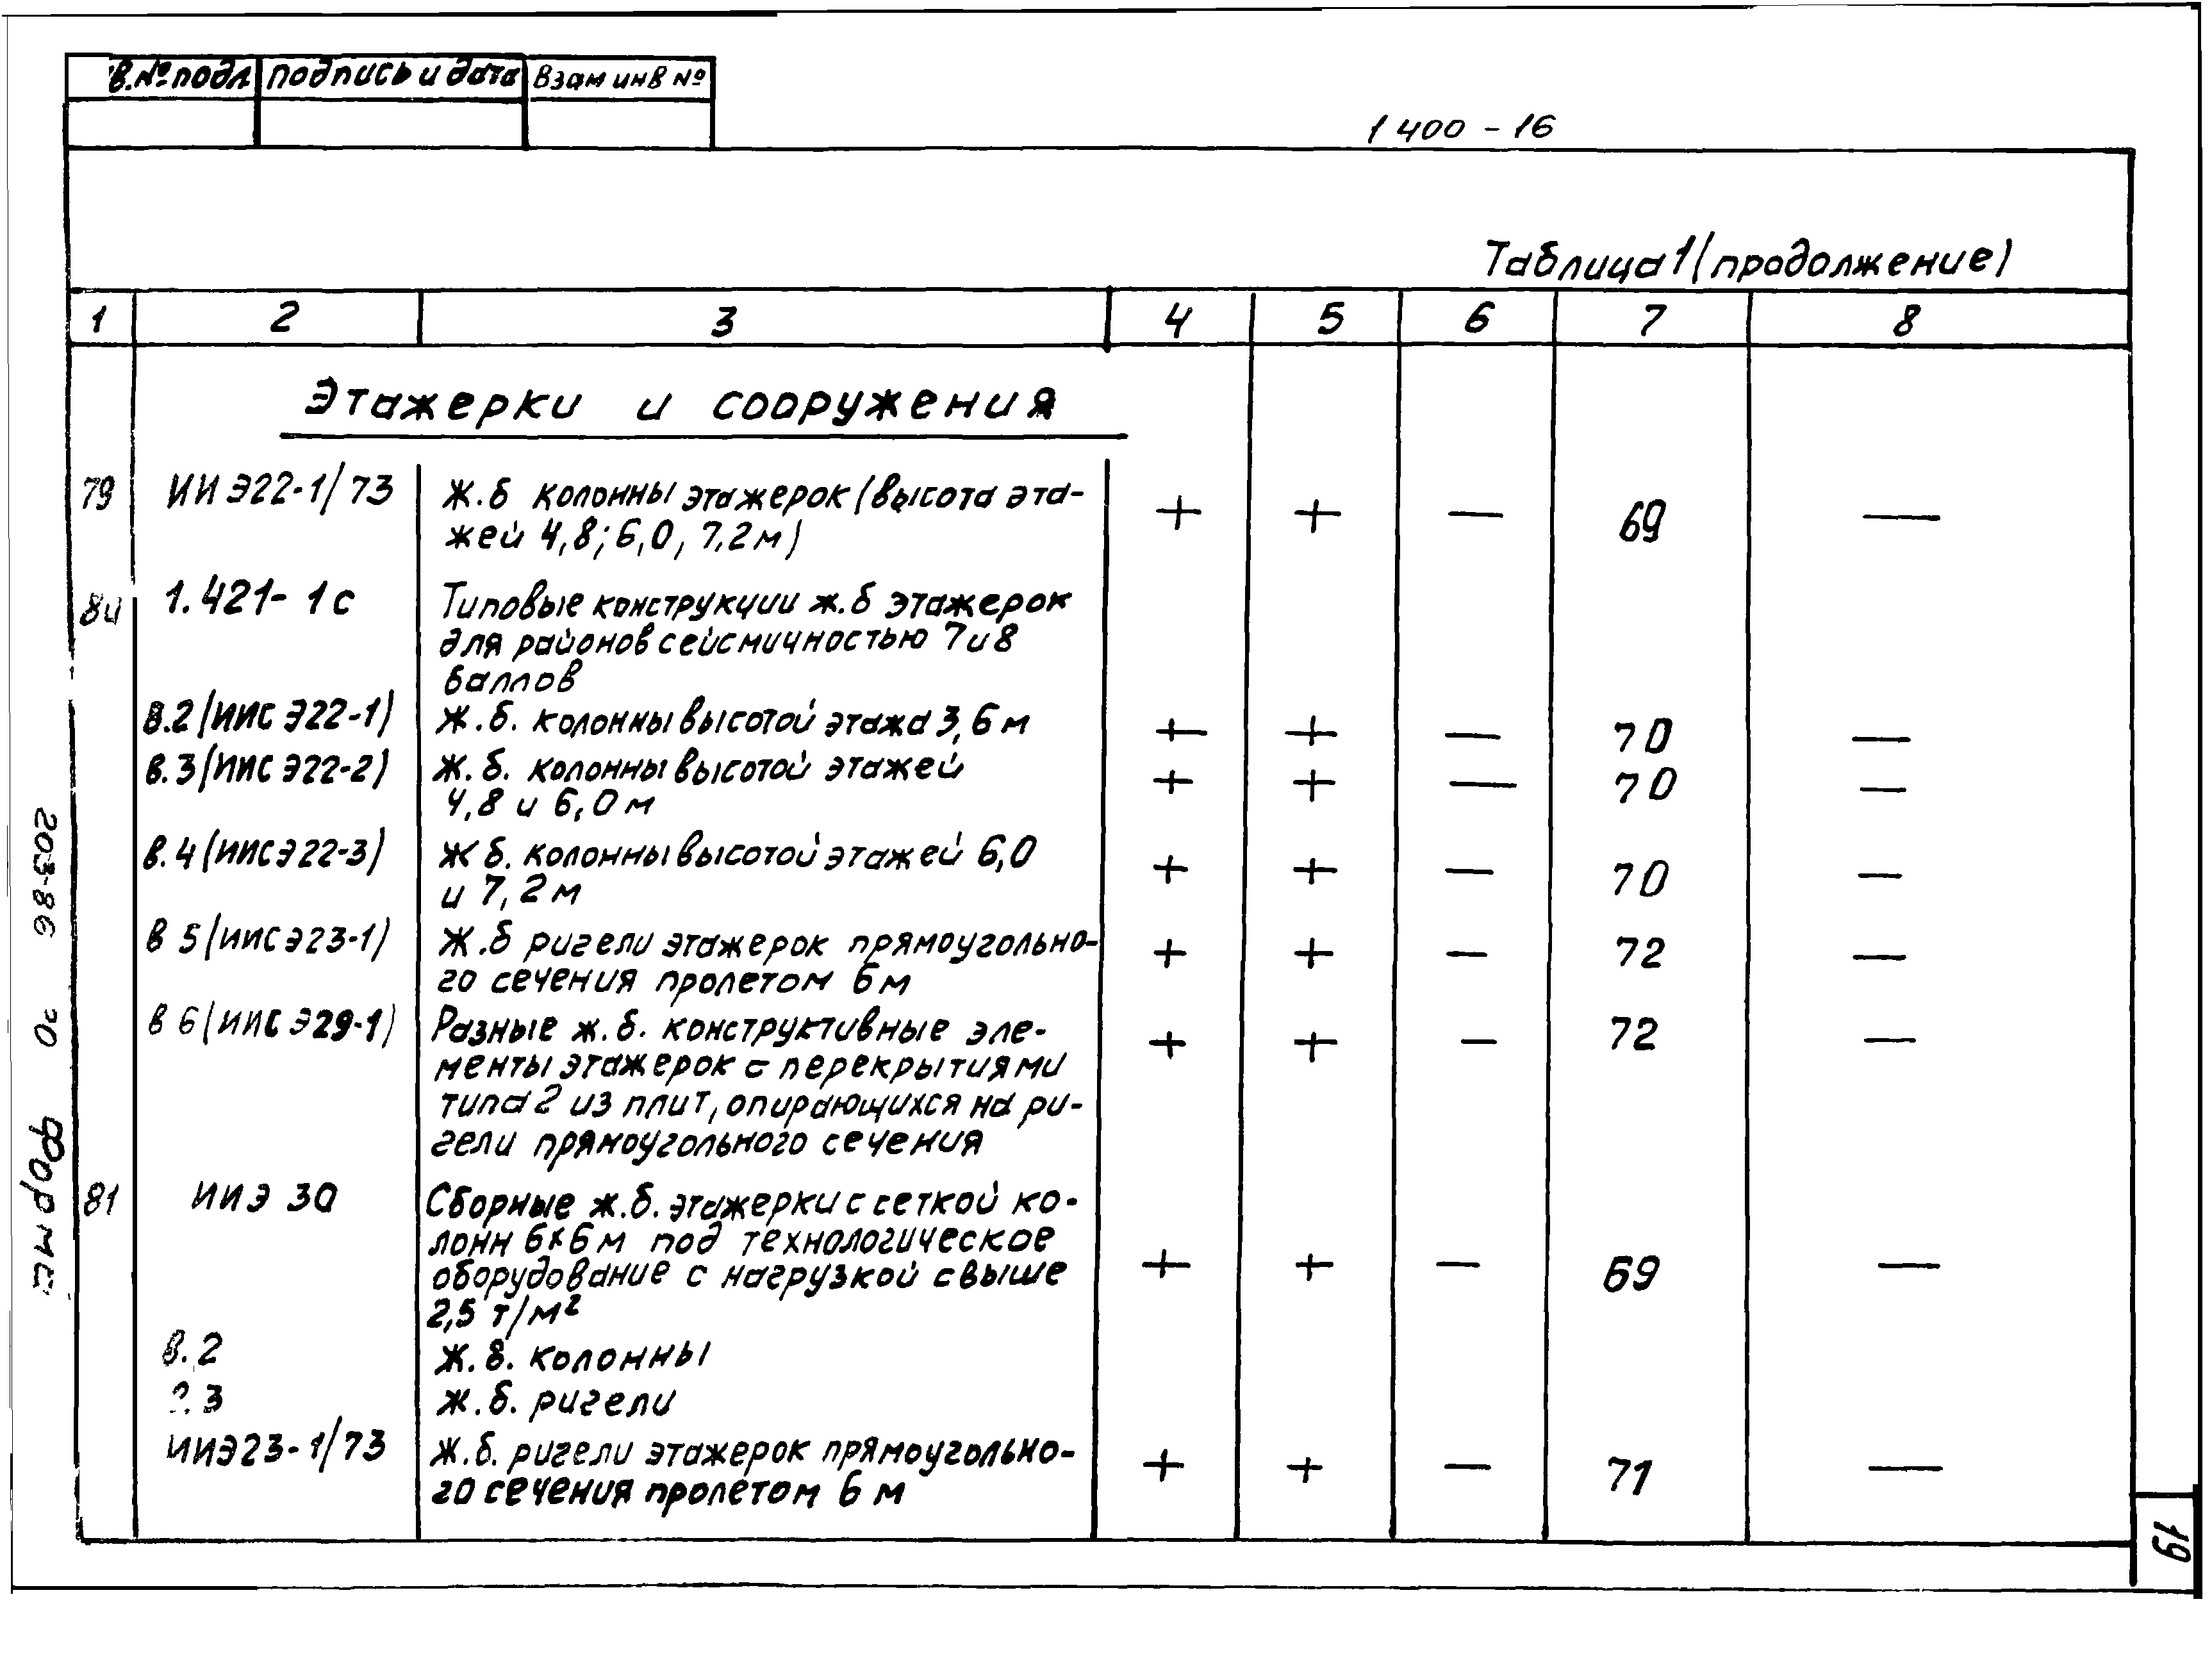 в.№ подл. подпись и дата Взам инв №
1 400 - 16
Таблица 1 (продолжение)
1 2 3 4 5 6 7 8
Этажерки и сооружения
79 ИИ Э22-1/73 Ж.б колонны этажерок (высота эта-
жей 4,8; 6,0, 7,2 м) + + — 69 —
1.421-1с Типовые конструкции ж.б этажерок
для районов сейсмичностью 7 и 8
баллов
в.2 (ИИС Э22-1) Ж.б. колонны высотой этажа 3,6 м + + — 70 —
в.3 (ИИС Э22-2) Ж.б. колонны высотой этажей
4,8 и 6,0 м + + — 70 —
в.4 (ИИС Э22-3) Ж б. колонны высотой этажей 6,0
и 7,2 м + + — 70 —
в 5 (ИИС Э23-1) Ж.б ригели этажерок прямоугольно-
го сечения пролетом 6 м + + — 72 —
в 6 (ИИС Э29-1) Разные ж.б. конструктивные эле-
менты этажерок с перекрытиями
типа 2 из плит, опирающихся на ри-
гели прямоугольного сечения + + — 72 —
81 ИИЭ 30 Сборные ж.б. этажерки с сеткой ко-
лонн 6х6 м под технологическое
оборудование с нагрузкой свыше
2,5 т/м² + + — 69 —
в.2 Ж.б. колонны
3 Ж.б. ригели
ИИЭ23-1/73 Ж.б. ригели этажерок прямоугольно-
го сечения пролетом 6 м + + — 71 —
19
203-86
Формат